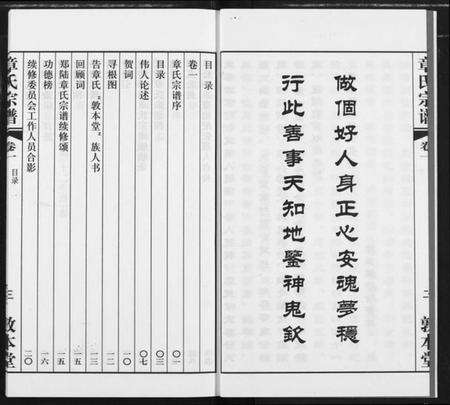 章氏宗谱
卷一
二
敦本堂
做個好人身正心安魂夢穩
行此善事天知地鑒神鬼欽
目录
章氏宗谱序 〇一
目录 〇三
卷一
伟人论述 〇七
贺词 一〇
寻根图 一二
告章氏“敦本堂”族人书 一三
回顾词 一五
郑陆章氏宗谱续修颂 一五
功德榜 一六
续修委员会工作人员合影 二〇
章氏宗谱
卷一
目录
三
敦本堂